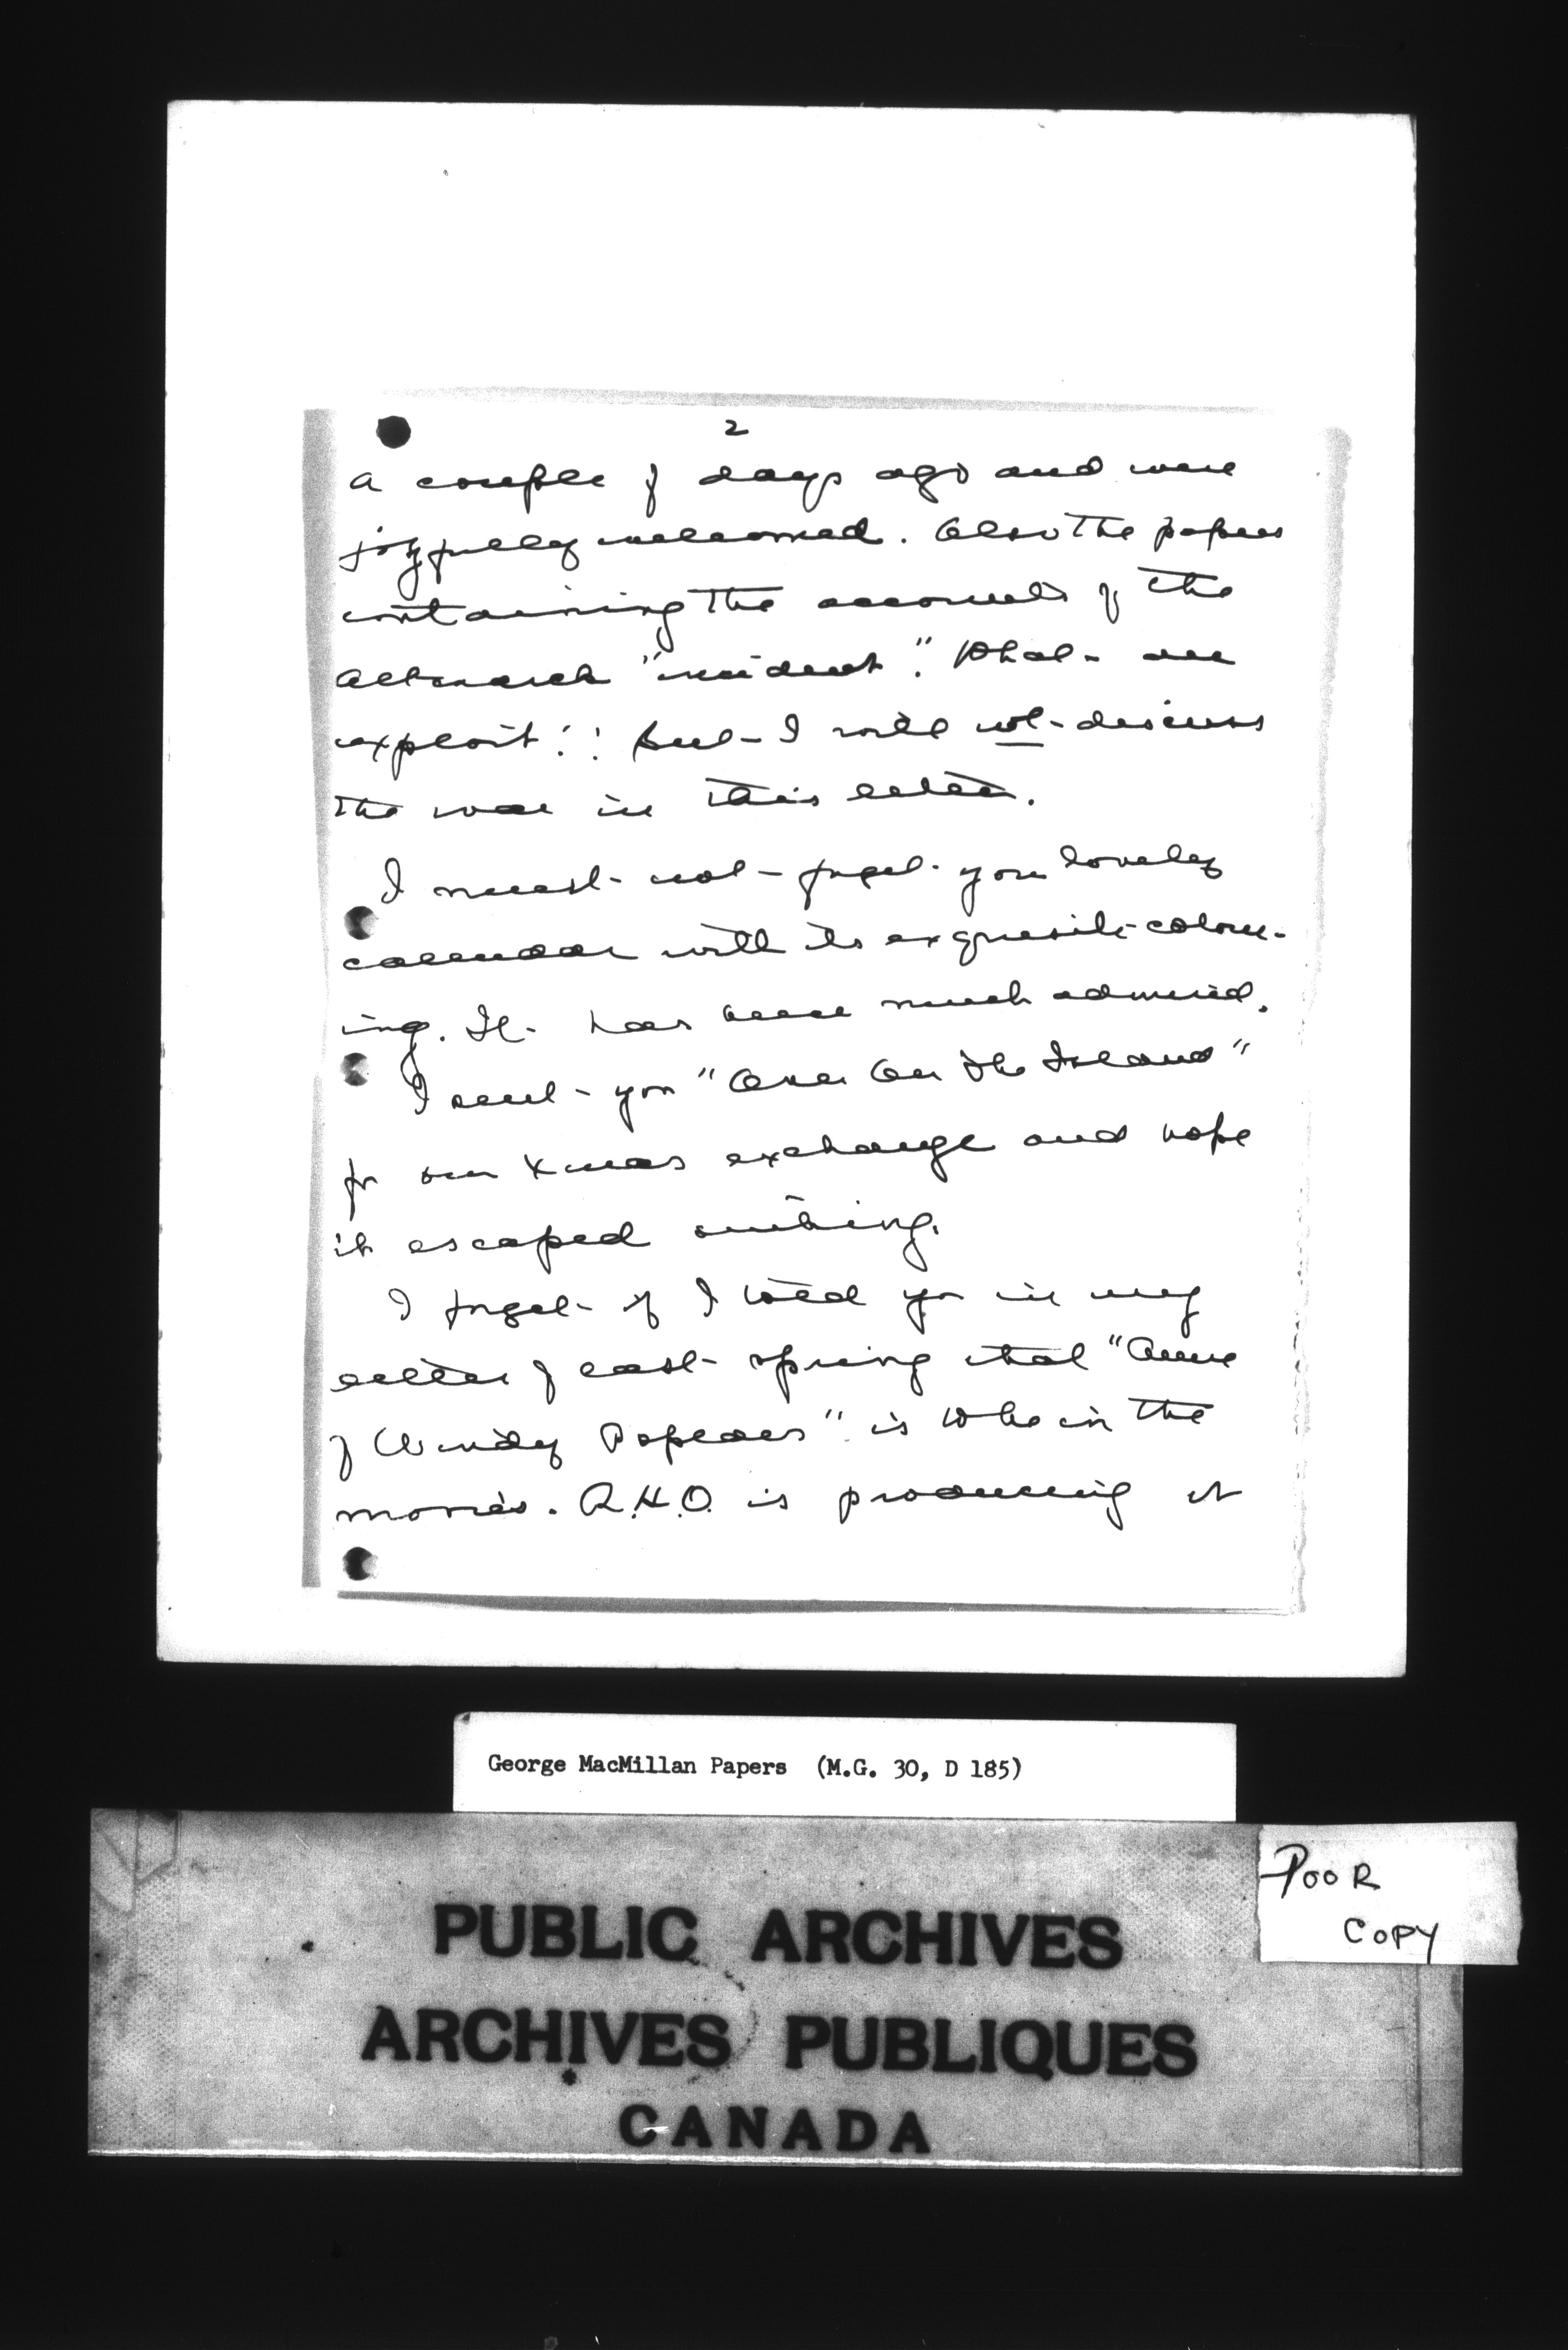 2
a couple of days ago and were
joyfully welcomed. Also the papers
containing the accounts of the
Altmarck "incident". What an
exploit!! But I will not discuss
the war in this letter.
I must not forget you lovely
calendar with its exquisite colour-
ing. It has been much admired.
I sent you "Over On The Island"
for our Xmas exchange and hope
it escaped sinking.
I forget if I told you in my
letter of last spring that "Anne
of Windy Poplars" is to be in the
movies. R.K.O. is producing it
George MacMillan Papers (M.G. 30, D 185)
POOR
COPY
PUBLIC ARCHIVES
ARCHIVES PUBLIQUES
CANADA